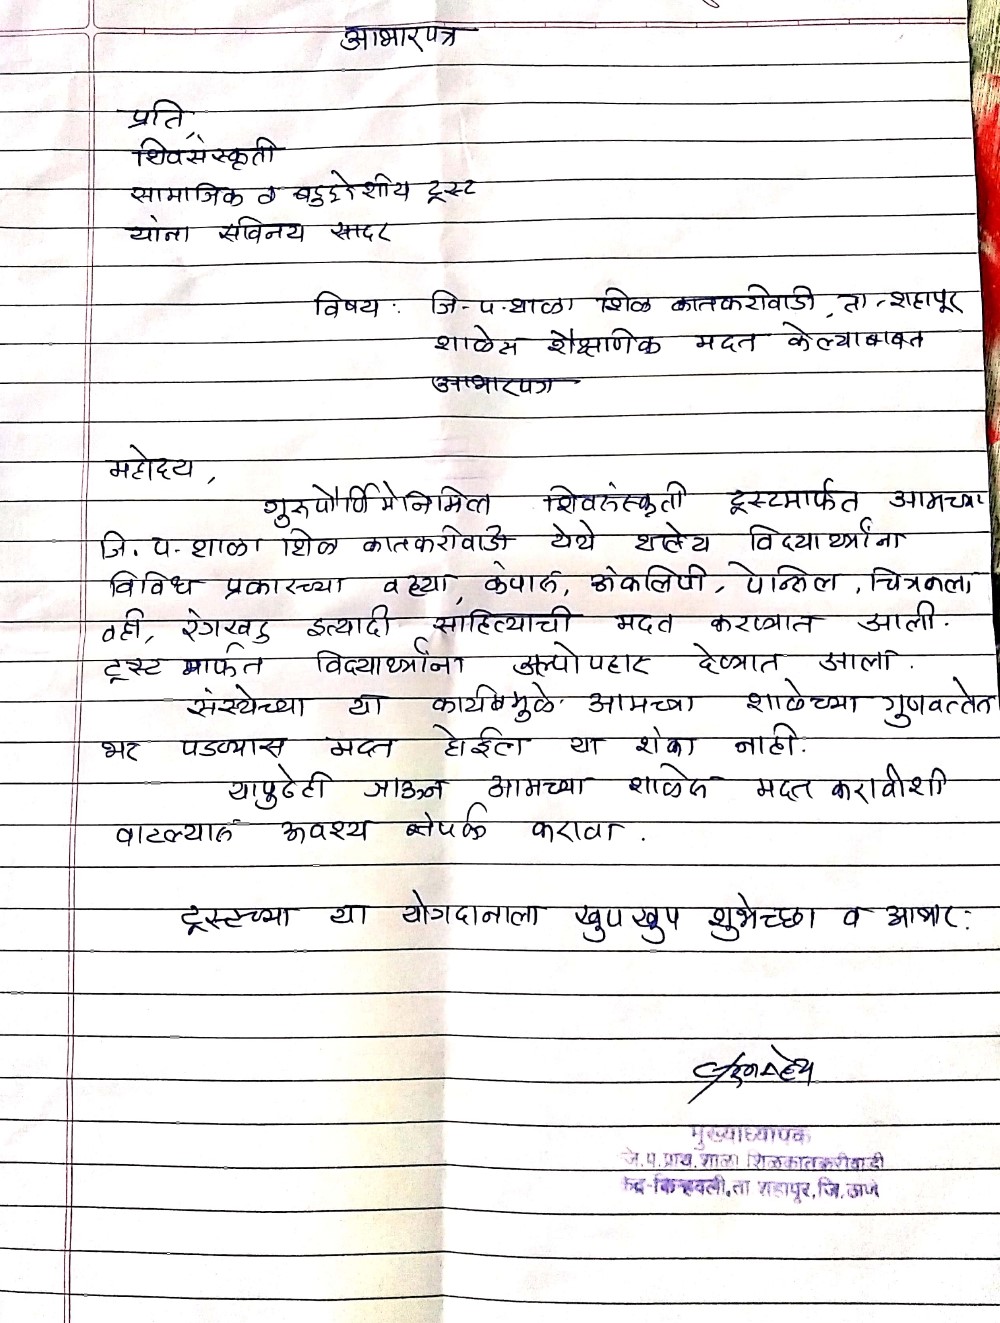 आभारपत्र
प्रति,
शिवसंस्कृती
सामाजिक व बहुद्देशीय ट्रस्ट
यांना सविनय सादर
विषय : जि. प. शाळा शिळ कातकरीवाडी, ता-शहापूर
शाळेस शैक्षणिक मदत केल्याबाबत
आभारपत्र
महोदय,
गुरुपौर्णिमेनिमित्त शिवसंस्कृती ट्रस्टमार्फत आमच्या
जि. प. शाळा शिळ कातकरीवाडी येथे शालेय विद्यार्थ्यांना
विविध प्रकारच्या वह्या, कंपास, अंकलिपी, पेन्सिल, चित्रकला
वही, रंगखडु इत्यादी साहित्याची मदत करण्यात आली.
ट्रस्ट मार्फत विद्यार्थ्यांना अल्पोपहार देण्यात आला.
संस्थेच्या या कार्यामुळे आमच्या शाळेच्या गुणवत्तेत
भर पडण्यास मदत होईल या शंका नाही.
यापुढेही जाऊन आमच्या शाळेस मदत करावीशी
वाटल्यास अवश्य संपर्क करावा.
ट्रस्टच्या या योगदानाला खुप खुप शुभेच्छा व आभार.
मुख्याध्यापक
जि.प.प्राथ. शाळा शिळकातकरीवाडी
केंद्र-किन्हवली, ता शहापूर, जि. ठाणे